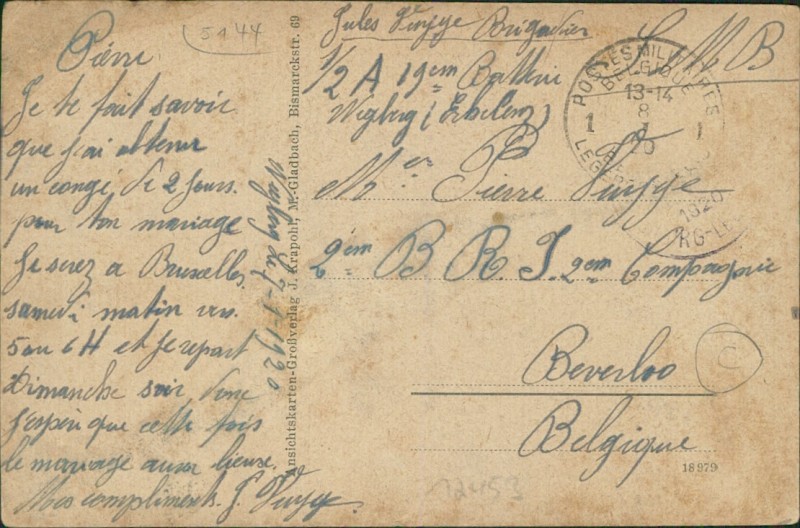 5144
Pierre
Je te fait savoir
que j'ai obtenu
un congé de 2 Jours.
pour ton mariage
Je serez a Bruxelles
samedi matin vers.
5 ou 6 H et je repart
Dimanche soir donc
J'espère que cette fois
le mariage aura lieux.
Mes compliments. J.
7-1-1920
Ansichtskarten-Großverlag J. Krapohl, M.-Gladbach, Bismarckstr. 69
Jules Brigadier
1/2 A 19em Batterie
S. M B
POSTES MILITAIRES
BELGIQUE
13-14
8
I
20
1 1
1920
Mer Pierre
2em B R I 2em Compagnie
Beverloo
Belgique
18979
12453